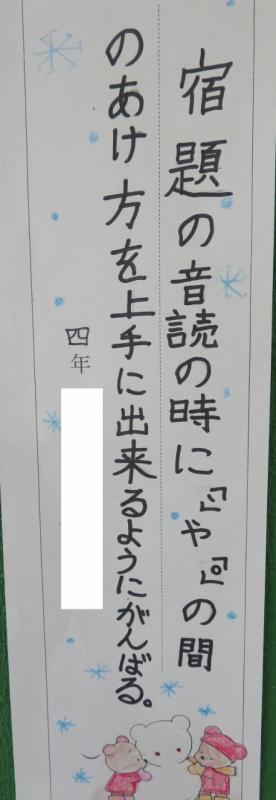 宿題の音読の時に「、」や「。」の間
のあけ方を上手に出来るようにがんばる。
四年